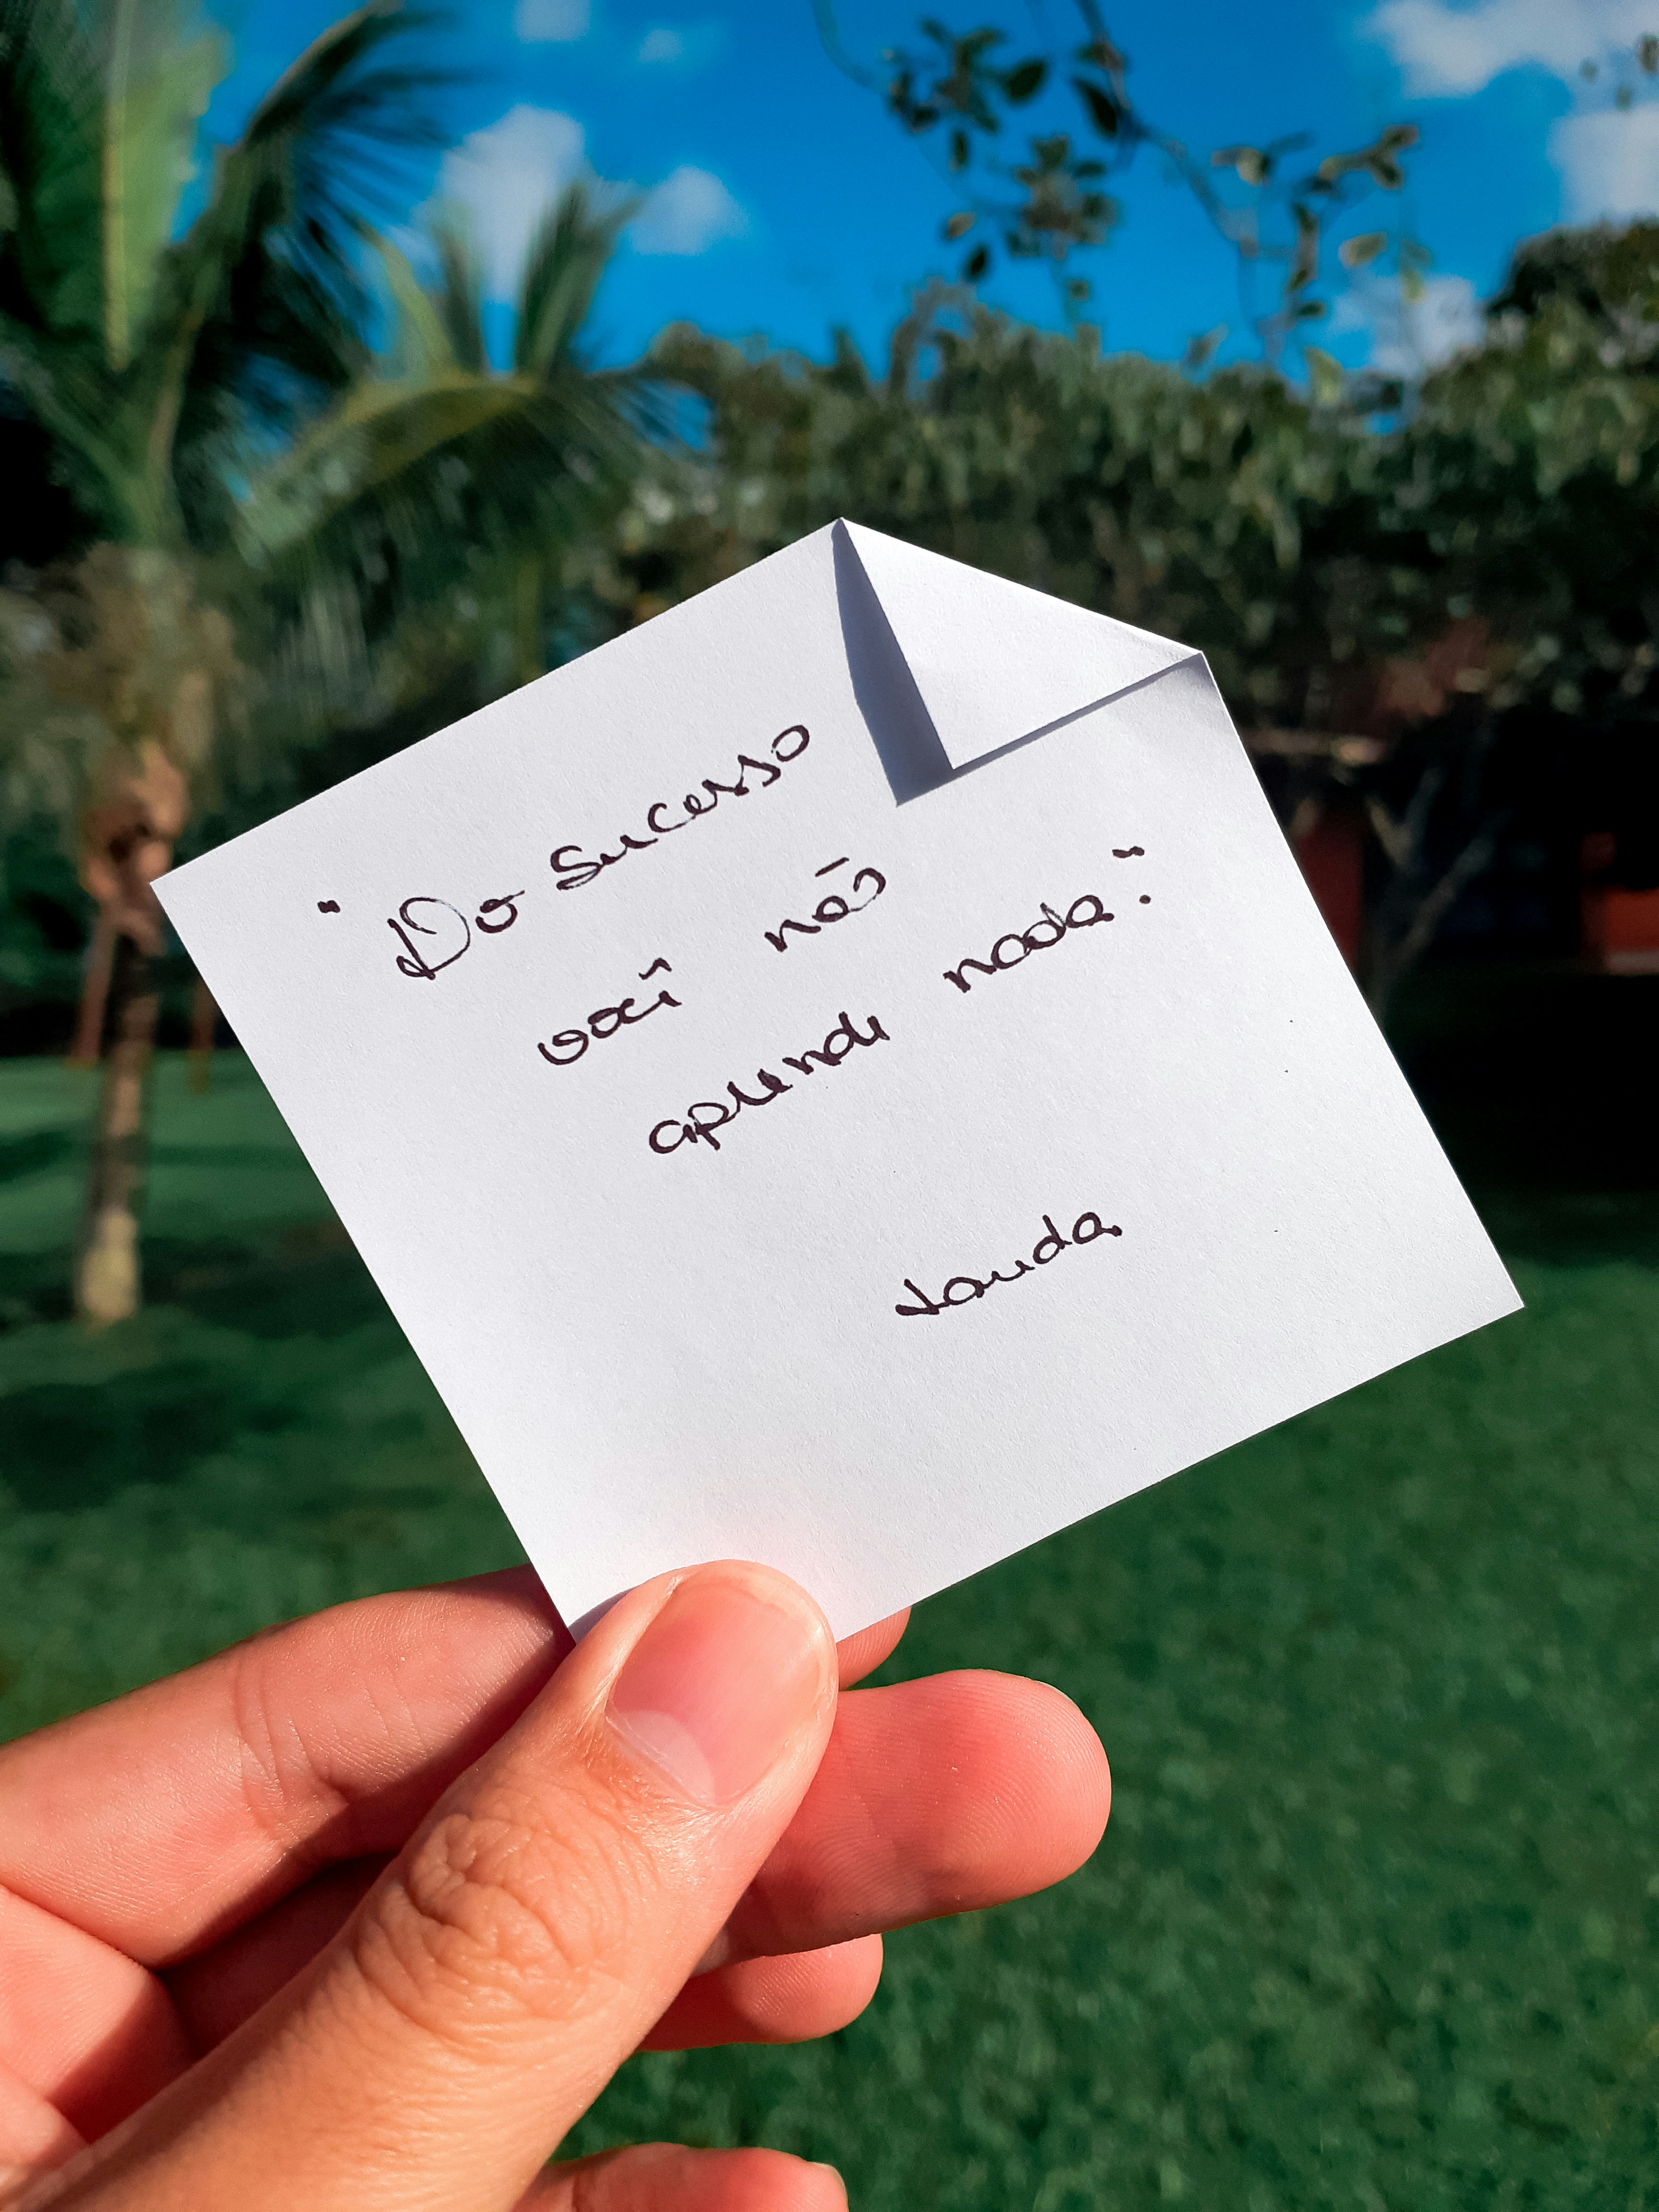 "Do sucesso
você não
aprende nada."